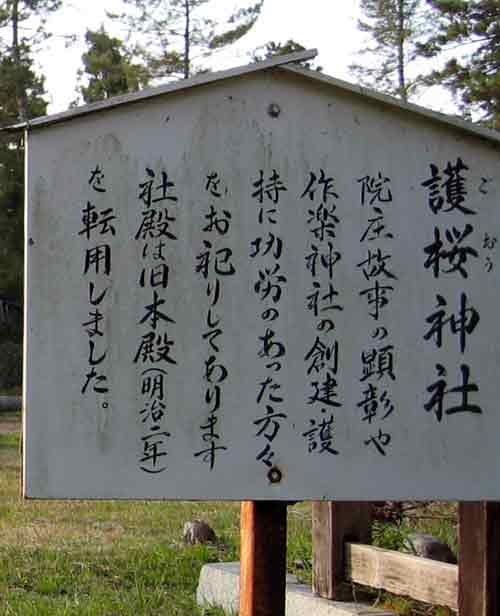 護桜神社
ごおう
院庄故事の顕彰や
作楽神社の創建・護
持に功労のあった方々
をお祀りしてあります
社殿は旧本殿(明治二年)
を転用しました。